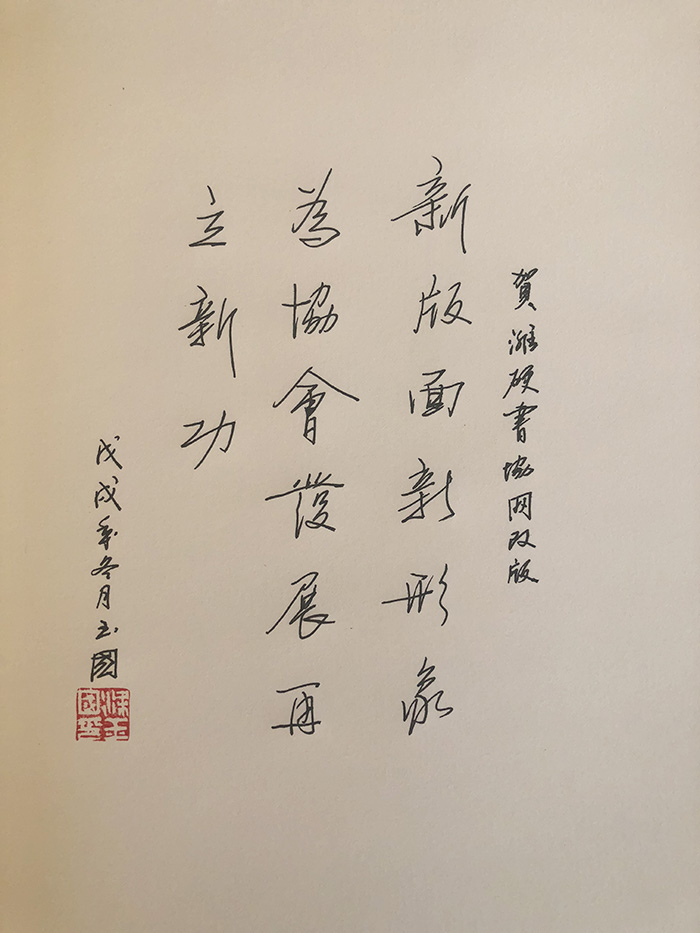 賀濰硬書協网改版
新版面新形象
為協會發展再
立新功
戊戌年冬月玉國